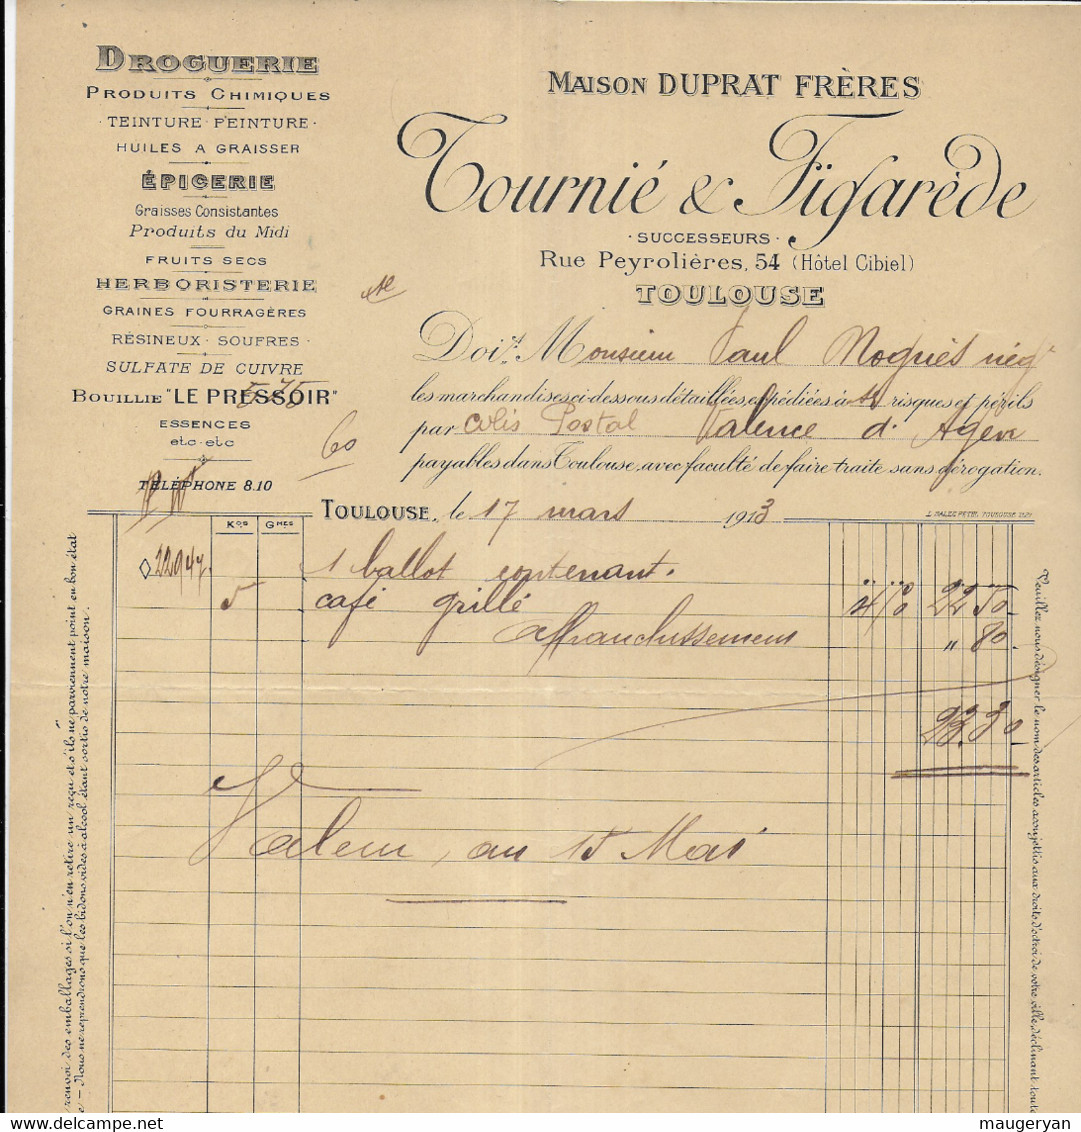 DROGUERIE
PRODUITS CHIMIQUES
· TEINTURE · PEINTURE ·
HUILES A GRAISSER
ÉPICERIE
Graisses Consistantes
Produits du Midi
FRUITS SECS
HERBORISTERIE
GRAINES FOURRAGÈRES
RÉSINEUX · SOUFRES ·
SULFATE DE CUIVRE
BOUILLIE "LE PRESSOIR"
5 75
ESSENCES
etc · etc
60
TÉLÉPHONE 8.10
MAISON DUPRAT FRÈRES
Tournié & Figarède
· SUCCESSEURS ·
Rue Peyrolières, 54 (Hôtel Cibiel)
TOULOUSE
Doit Monsieur Paul Noguès négt
les marchandises ci-dessous détaillées, expédiées à risques et périls
par Colis Postal Valence d'Agen
payables dans Toulouse, avec faculté de faire traite sans dérogation.
TOULOUSE, le 17 mars 1913
L. DALEZ PETRI. TOULOUSE
KOS GMES
22947 1 ballot contenant.
5 café grillé 4 50 22 50
affranchissement " 80
23.30
Valeur, au 15 Mai
renvoi des emballages si l'on n'en retire un reçu et s'ils ne parviennent point en bon état
– Nous ne reprendrons que les bidons vides à alcool étant sortis de notre maison.
Veuillez nous désigner le nom des articles assujettis aux droits d'octroi de votre ville, déclinant toute
delcampe.net
maugeryan